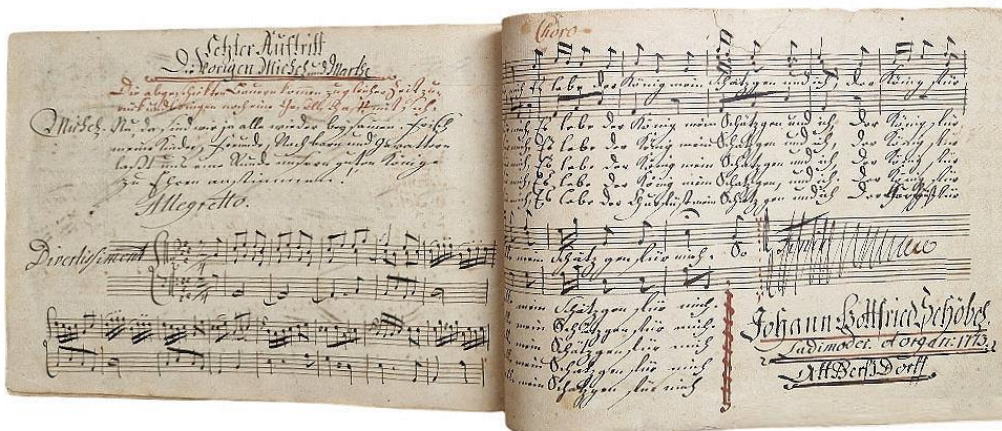 Letzter Auftritt
Die Vorigen Michel und Marthe
Die abgeschickten Bauern kommen zugleicher Zeit zu-
rück und bringen noch eine Gesellschaft mit sich.
Michel. Nu, da sind wir ja alle wieder beysamen. Frisch
meine Kinder, Freunde, Nachbarn und Gevattern
last uns eine Runde unserm guten Könige
zu Ehren anstimmen!
Allegretto.
Divertissiment
Choro
Es lebe der König mein Schätzgen und ich, der König für
Es lebe der König mein Schätzgen und ich der König für
Es lebe der König mein Schätzgen und ich der König für
Es lebe der König mein Schätzgen und ich der König für
Es lebe der König mein Schätzgen, und ich der König für
Es lebe der mein Schätzgen und ich der für
mein Schätzgen für mich. So
mein Schätzgen für mich.
mein Schätzgen für mich
mein Schätzgen für mich
mein Schätzgen für mich
mein Schätzgen für mich
Johann Gottfried Schöbel
Ludimoder. et organ: 1773.